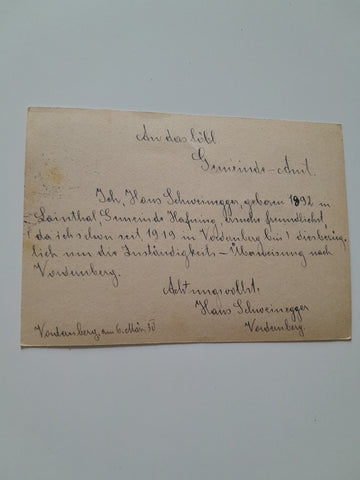 An das löbl.
Gemeinde-Amt.
Ich, Hans Schweinegger, geboren 1892 in
Lainthal, Gemeinde Hafning, ersuche freundlichst
da ich schon seit 1919 in Vordenberg bin! diesbezüg-
lich um die Zuständigkeits-Überweisung nach
Vordernberg.
Achtungsvollst.
Hans Schweinegger
Vordernberg.
Vordernberg, am 6. März 30